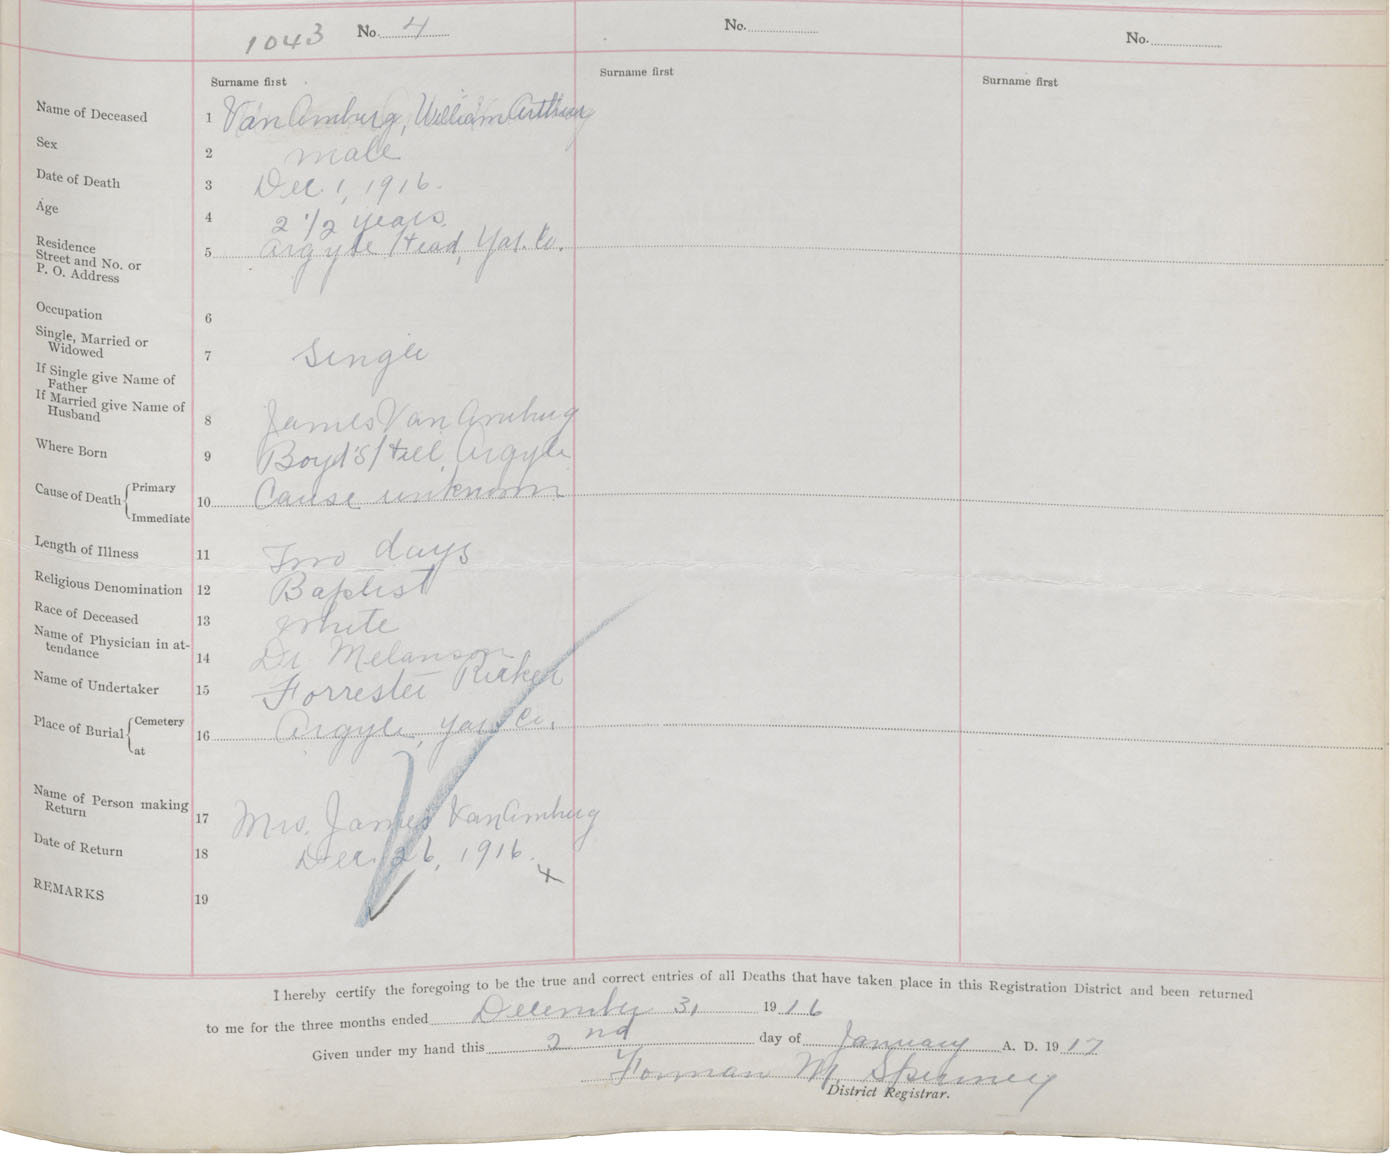 1043 No. 4 No. No.
Surname first Surname first Surname first
Name of Deceased 1 Van Amburg, William Arthur
Sex 2 male
Date of Death 3 Dec. 1, 1916.
Age 4 2 1/2 years.
Residence
Street and No. or
P. O. Address 5 Argyle Head, Yar. Co.
Occupation 6
Single, Married or
Widowed 7 Single
If Single give Name of
Father
If Married give Name of
Husband 8 James Van Amburg
Where Born 9 Boyd's Hill, Argyle
Cause of Death { Primary
10 Cause unknown
Immediate
Length of Illness 11 Two days
Religious Denomination 12 Baptist
Race of Deceased 13 White
Name of Physician in at-
tendance 14 Dr Melanson
Name of Undertaker 15 Forrester
Place of Burial { Cemetery
16 Argyle, Yar. Co.
at
Name of Person making
Return 17 Mrs. James Van Amburg
Date of Return 18 Dec. 26, 1916.
4
REMARKS 19
I hereby certify the foregoing to be the true and correct entries of all Deaths that have taken place in this Registration District and been returned
to me for the three months ended December 31, 1916
Given under my hand this 2nd day of January A. D. 1917
Forman M. Spinney
District Registrar.